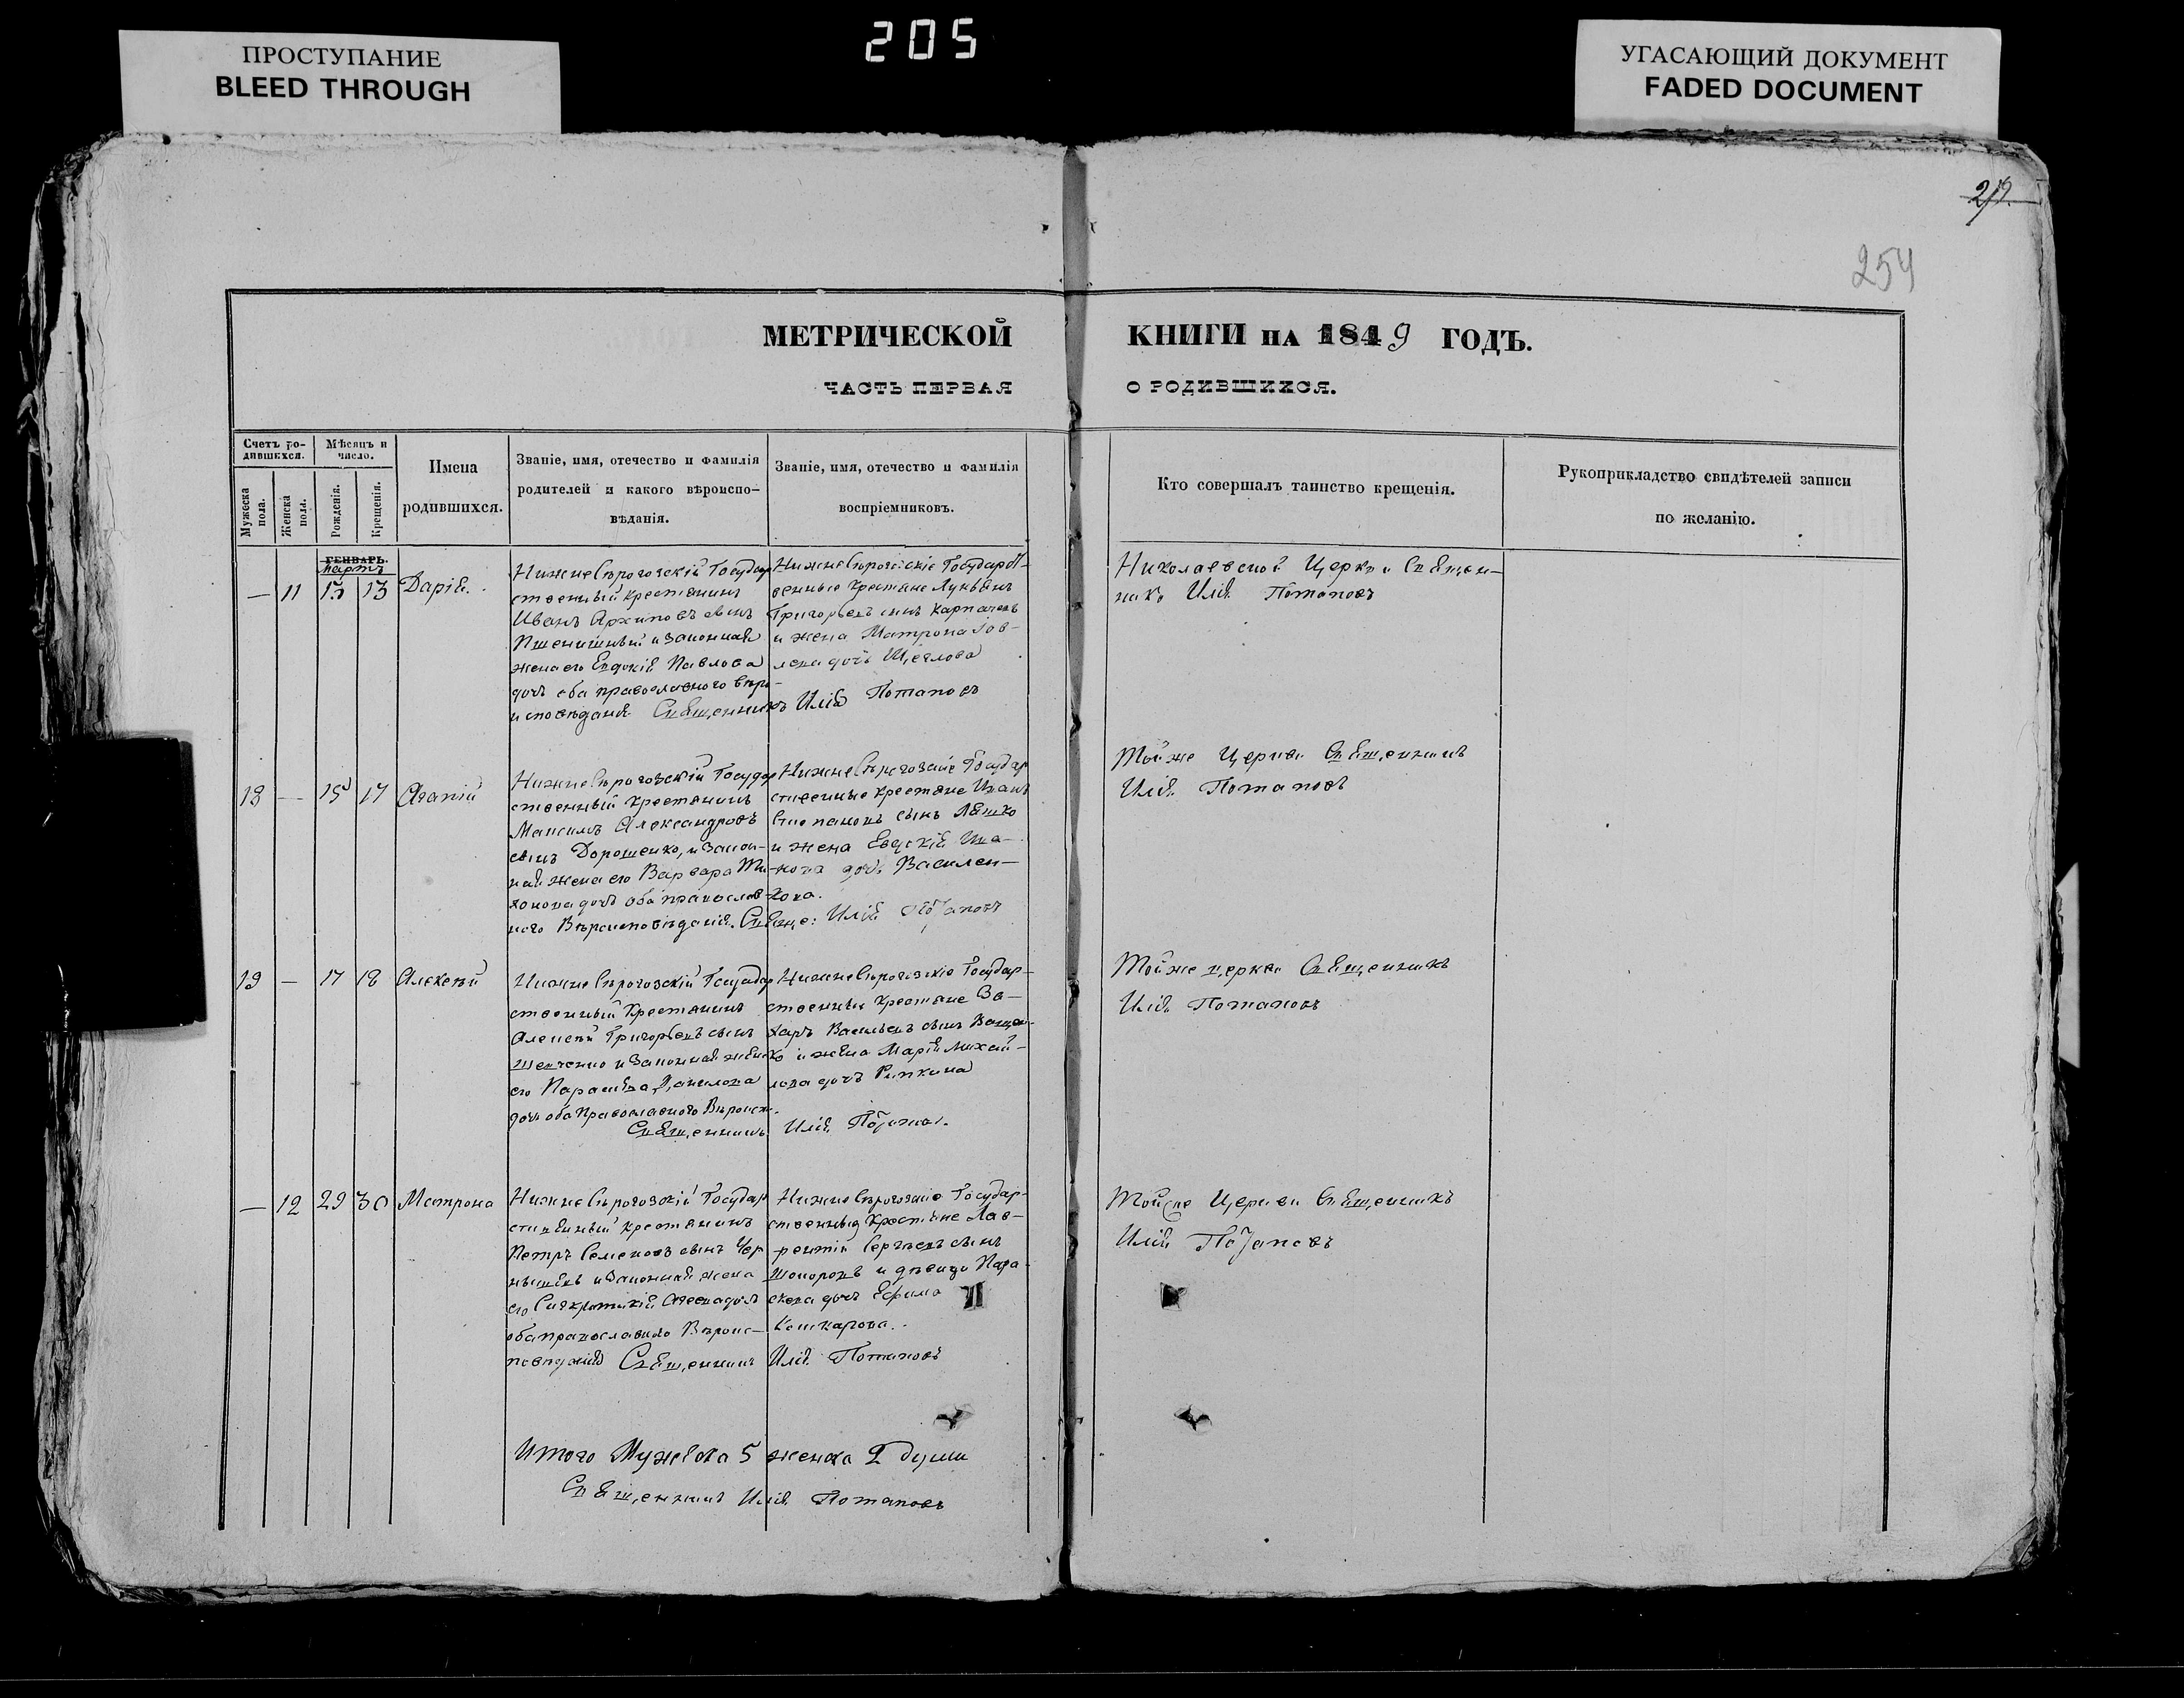 ПРОСТУПАНИЕ
BLEED THROUGH
205
УГАСАЮЩИЙ ДОКУМЕНТ
FADED DOCUMENT
254
МЕТРИЧЕСКОЙ КНИГИ НА 1849 ГОДЪ.
ЧАСТЬ ПЕРВАЯ О РОДИВШИХСЯ.
Счетъ ро-
дившихся.
Мужеска пола.
Женска пола.
Мѣсяцъ и
число.
Рожденія.
Крещенія.
Имена
родившихся.
Званіе, имя, отечество и фамилія
родителей и какого вѣроиспо-
вѣданія.
Званіе, имя, отечество и фамилія
воспріемниковъ.
Кто совершалъ таинство крещенія.
Рукоприкладство свидѣтелей записи
по желанію.
ГЕНВАРЬ.
Мартъ
— 11 13 13 Дарія.
Нижнесѣрогозскій Государ
ственный крестянинъ
Иванъ Архиповъ сынъ
Пшенишный и законная
жена его Евдокія Павлова
дочь оба православного вѣро-
исповѣданія Священникъ Илія Потаповъ
Нижнесѣрогозскіе Государст-
венные крестяне Лукьянъ
Григорьевъ сынъ Карпачевъ
и жена Матрона Іов-
лева дочь Щеглова
Николаевской Церкви Священ-
никъ Илія Потаповъ
18 — 15 17 Агапій
Нижнесѣрогозскій Государ
ственный крестянинъ
Максимъ Александровъ
сынъ Дорошенко, и закон-
ная жена его Варвара Ти-
хонова дочь оба православ-
ного Вѣроисповѣданія. Священ: Илія Потаповъ
Нижнесѣрогозскіе Государ
ственные крестяне Иванъ
Степановъ сынъ Ляшко
и жена Евдокія Ива-
нова дочь Василен-
кова.
Тойже Церкви Священникъ
Илія Потаповъ
19 — 17 18 Алексѣй
Нижнесѣрогозскій Государ
ственный Крестянинъ
Алексѣй Григорьевъ сынъ
Шевченко и Законная жена
его Параскева Данилова
дочь оба Православного Вѣроисп.
Священникъ Илія Потаповъ.
Нижнесѣрогозскіе Государ-
ственные крестяне За-
харъ Васильевъ сынъ
и жена Марія Михай-
лова дочь Рипкина
Тойже церкви Священникъ
Илія Потаповъ
— 12 29 30 Матрона
Нижнесѣрогозскій Государ
ственный крестянинъ
Петръ Семеновъ сынъ Чер
нышевъ и Законная жена
его дочь
оба православного Вѣроис-
повѣданія Священникъ Илія Потаповъ
Нижнесѣрогозскіе Государ-
ственные Крестяне Лав-
рентій Сергѣевъ сынъ
и дѣвица Пара-
скева дочь Ефима
Кошкарова.
Тойже Церкви Священникъ
Илія Потаповъ
Итого Мужеска 5 женска 2 души
Священникъ Илія Потаповъ